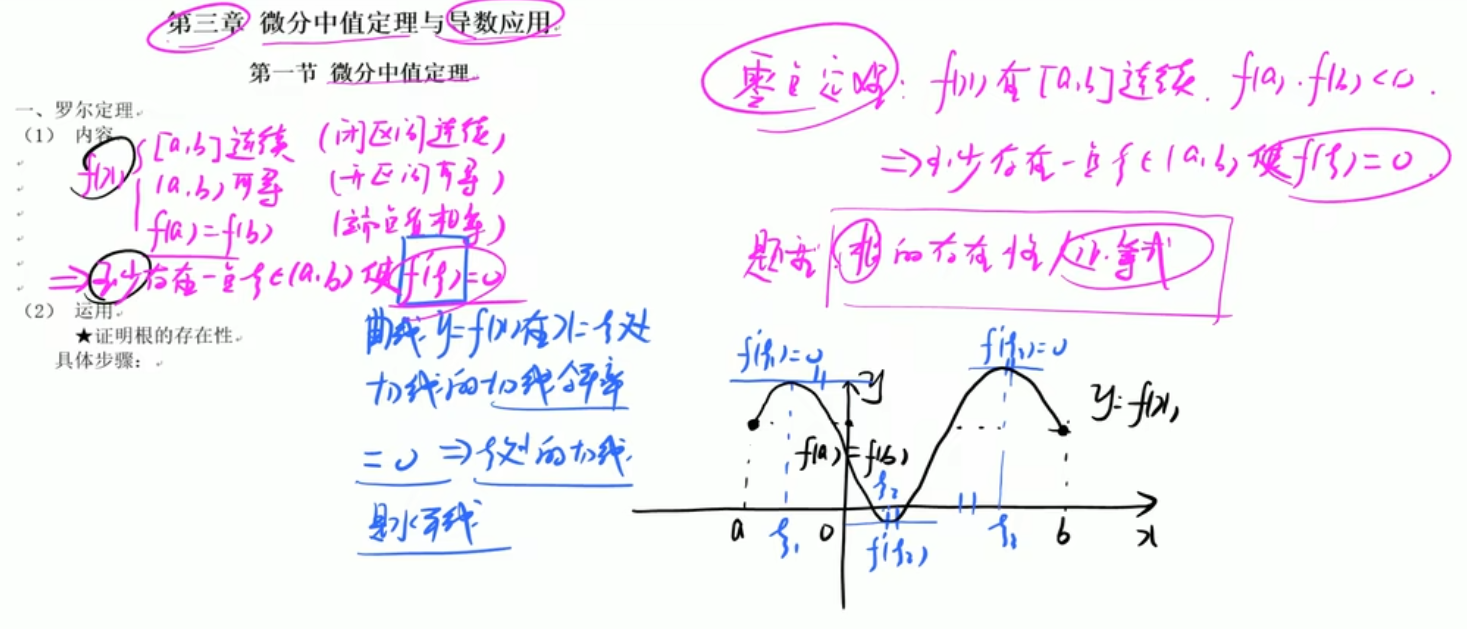 第三章 微分中值定理与导数应用
第一节 微分中值定理
一、罗尔定理
（1） 内容
f(x) [a,b]连续 (闭区间连续)
(a,b)可导 (开区间可导)
f(a)=f(b) (端点值相等)
⇒至少存在一点ξ∈(a,b) 使f'(ξ)=0
（2） 运用
★证明根的存在性
具体步骤：
曲线y=f(x)在x=ξ处
切线的切线斜率
=0 ⇒ξ处的切线
是水平线
零点定理: f(x)在[a,b]连续. f(a)·f(b)<0.
⇒至少存在一点ξ∈(a,b) 使f(ξ)=0.
题型: 根的存在性
f'(ξ₁)=0
f'(ξ₃)=0
y
y=f(x)
f(a)=f(b)
ξ₂
a ξ₁ 0 ξ₃ b x
f'(ξ₂)